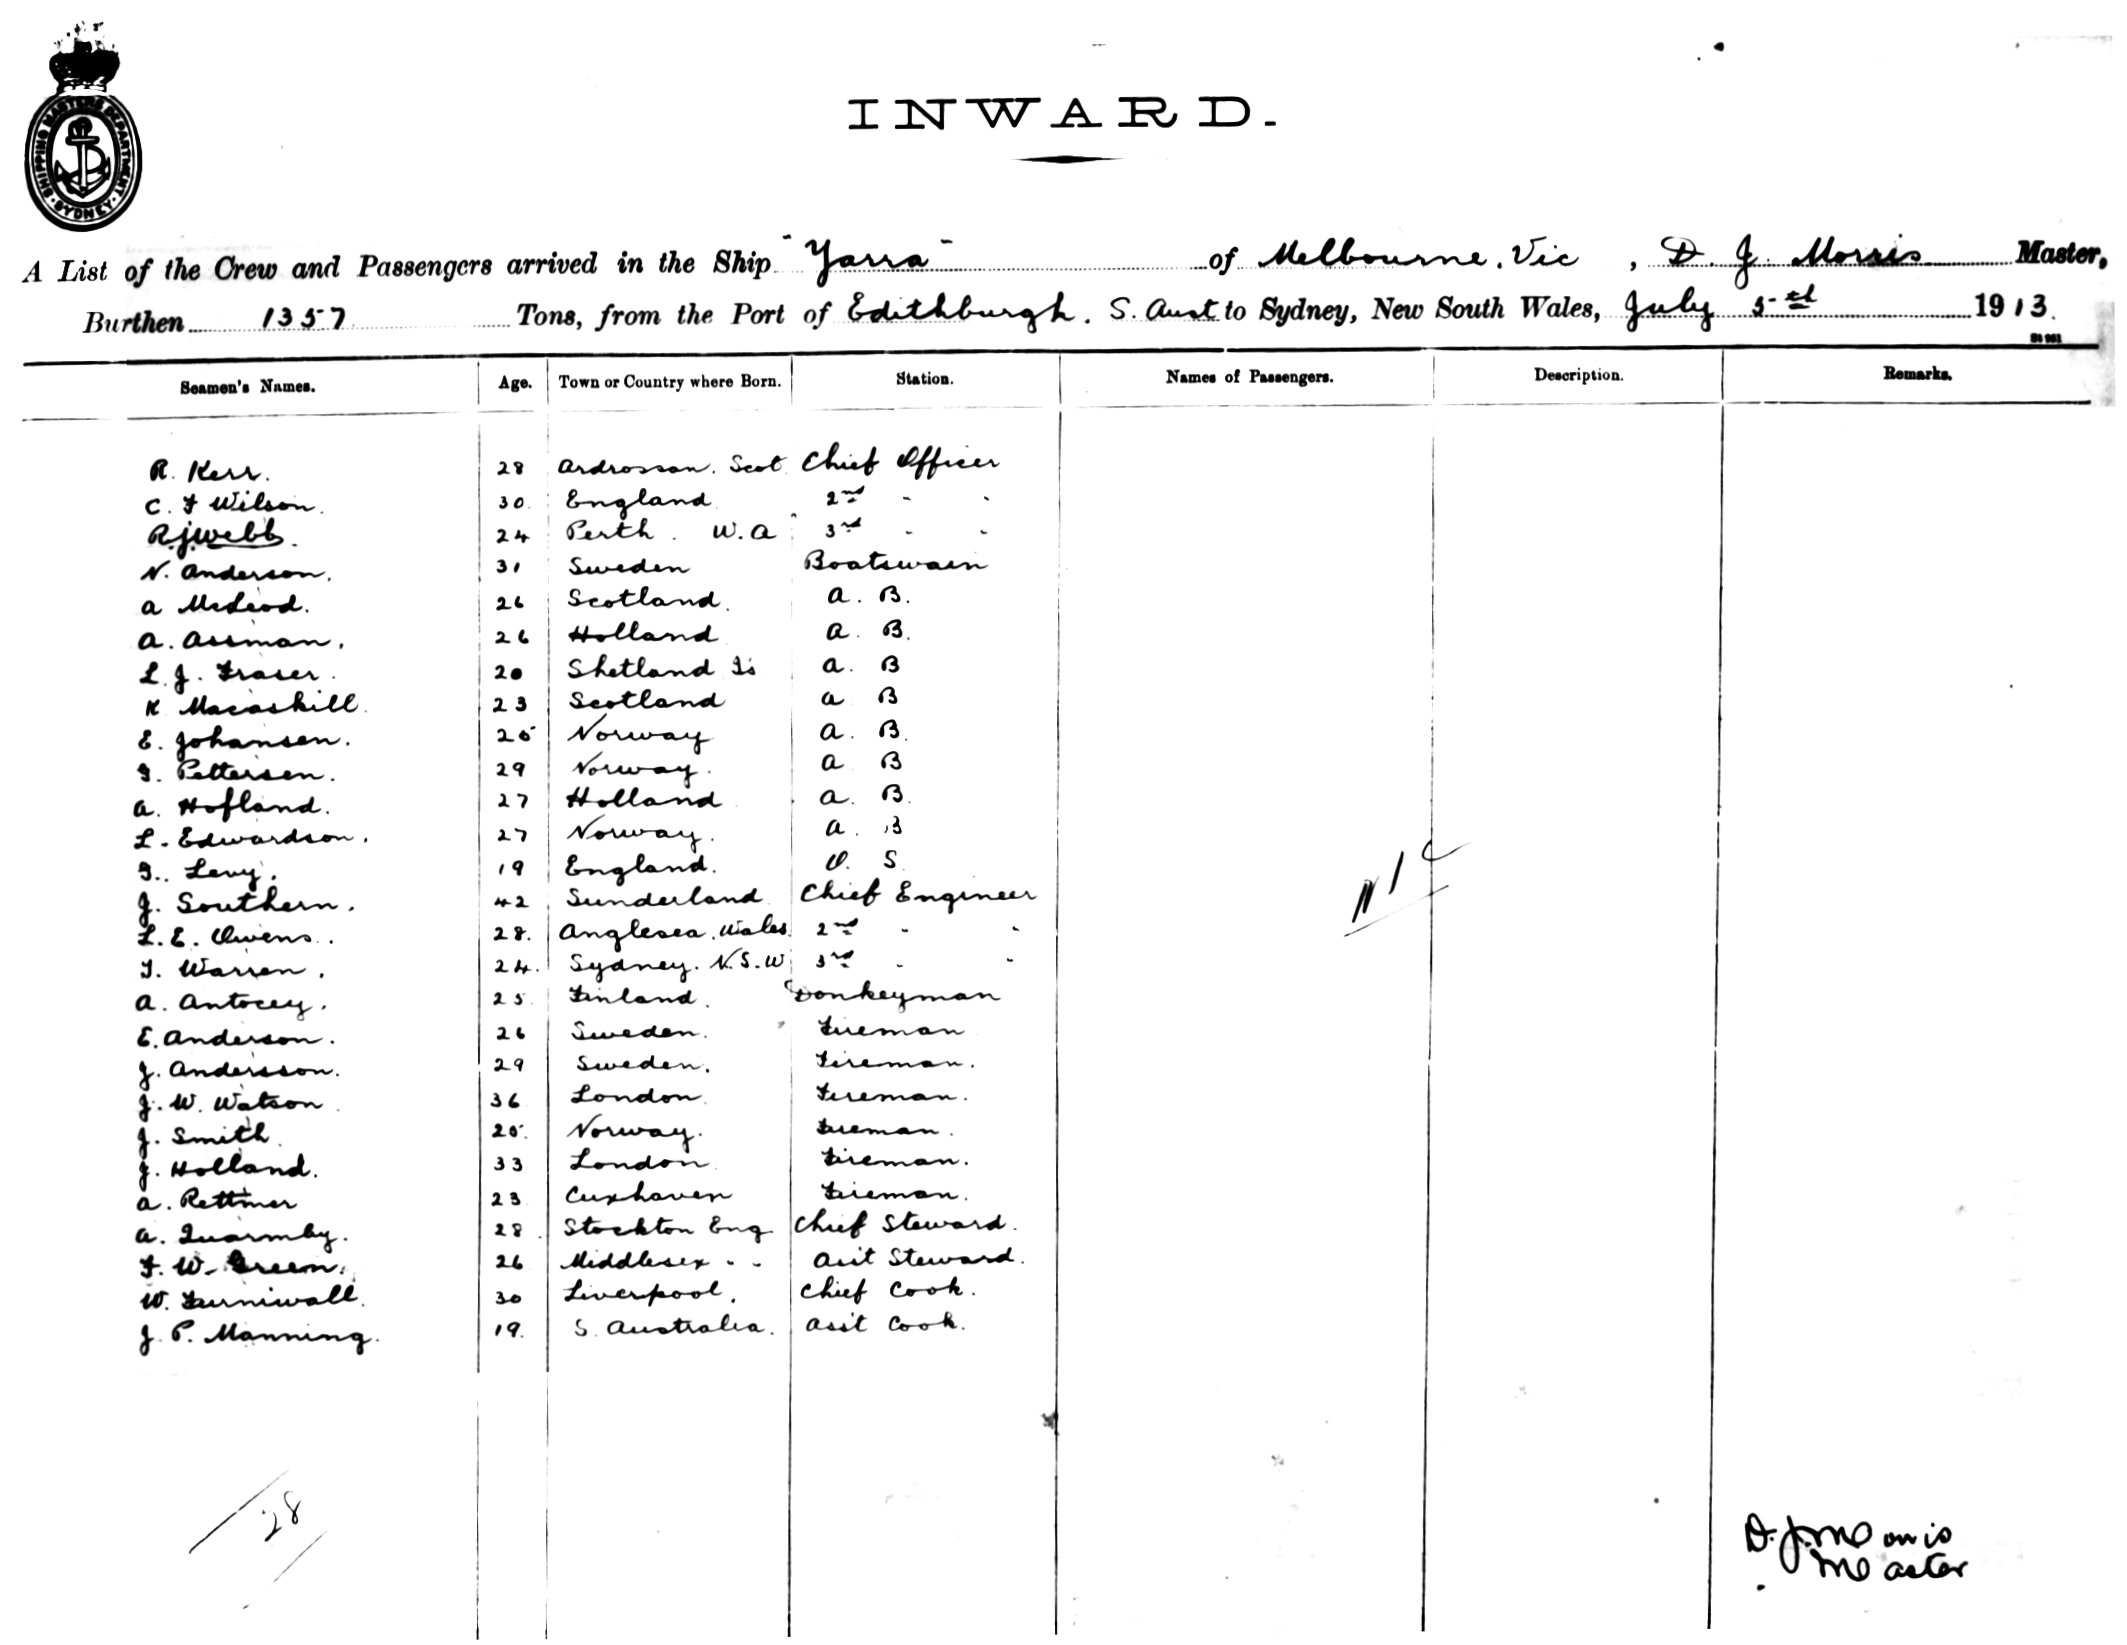 SHIPPING MASTERS DEPARTMENT. SYDNEY.
INWARD.
A List of the Crew and Passengers arrived in the Ship "Yarra" of Melbourne. Vic, D. J. Morris Master,
Burthen 1357 Tons, from the Port of Edithburgh. S. Aust to Sydney, New South Wales, July 5th 1913.
Seamen's Names. Age. Town or Country where Born. Station. Names of Passengers. Description. Remarks.
R. Kerr. 28 Ardrossan. Scot Chief Officer
C. F Wilson. 30 England 2nd " "
R.J. Webb. 24 Perth. W.A 3rd " "
N. Anderson. 31 Sweden Boatswain
A McLeod. 26 Scotland. A. B.
A. Assman. 26 Holland A. B.
L. J. Fraser. 20 Shetland Is A. B
K Macaskill. 23 Scotland A B
E. Johansen. 25 Norway A. B.
Pettersen. 29 Norway. A B
A. Hofland. 27 Holland A. B.
L. Edwardson. 27 Norway. A. B
Levy. 19 England. O. S.
J. Southern. 42 Sunderland Chief Engineer
L. E. Owens. 28. Anglesea. Wales 2nd " "
Warren. 24. Sydney. N.S.W 3rd " "
A. Antocey. 25 Finland. Donkeyman
E. Anderson. 26 Sweden. Fireman
J. Andersson. 29 Sweden. Fireman.
J. W. Watson 36 London. Fireman.
J. Smith 25. Norway. Fireman.
J. Holland. 33 London Fireman.
A. Rettmer 23 Cuxhaven Fireman.
A. Quarmby. 28. Stockton Eng Chief Steward.
F. W. Green. 26 Middlesex " " Asst Steward.
W. Furniwall. 30 Liverpool. Chief Cook.
J. P. Manning. 19. S. Australia. Asst Cook.
28
D. J. Morris
Master